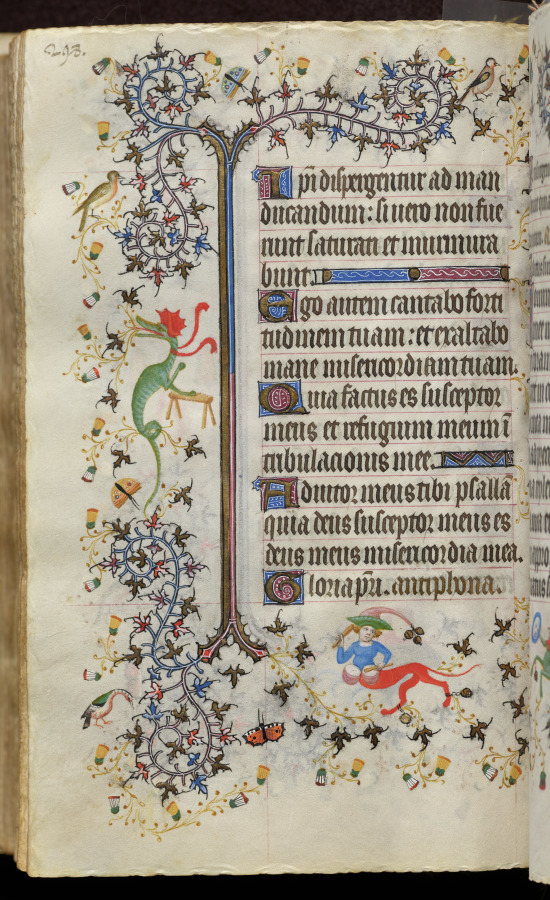 293.
Ipi dispergentur ad man
ducandum: si uero non fue
rint saturati et murmura
bunt.
Ego autem cantabo forti
tudinem tuam: et exaltabo
mane misericordiam tuam.
Quia factus es susceptor
meus et refugium meum ī
tribulacionis mee.
Adiutor meus tibi psallā
quia deus susceptor meus es
deus meus misericordia mea.
Gloria pr̄i. antiphona.